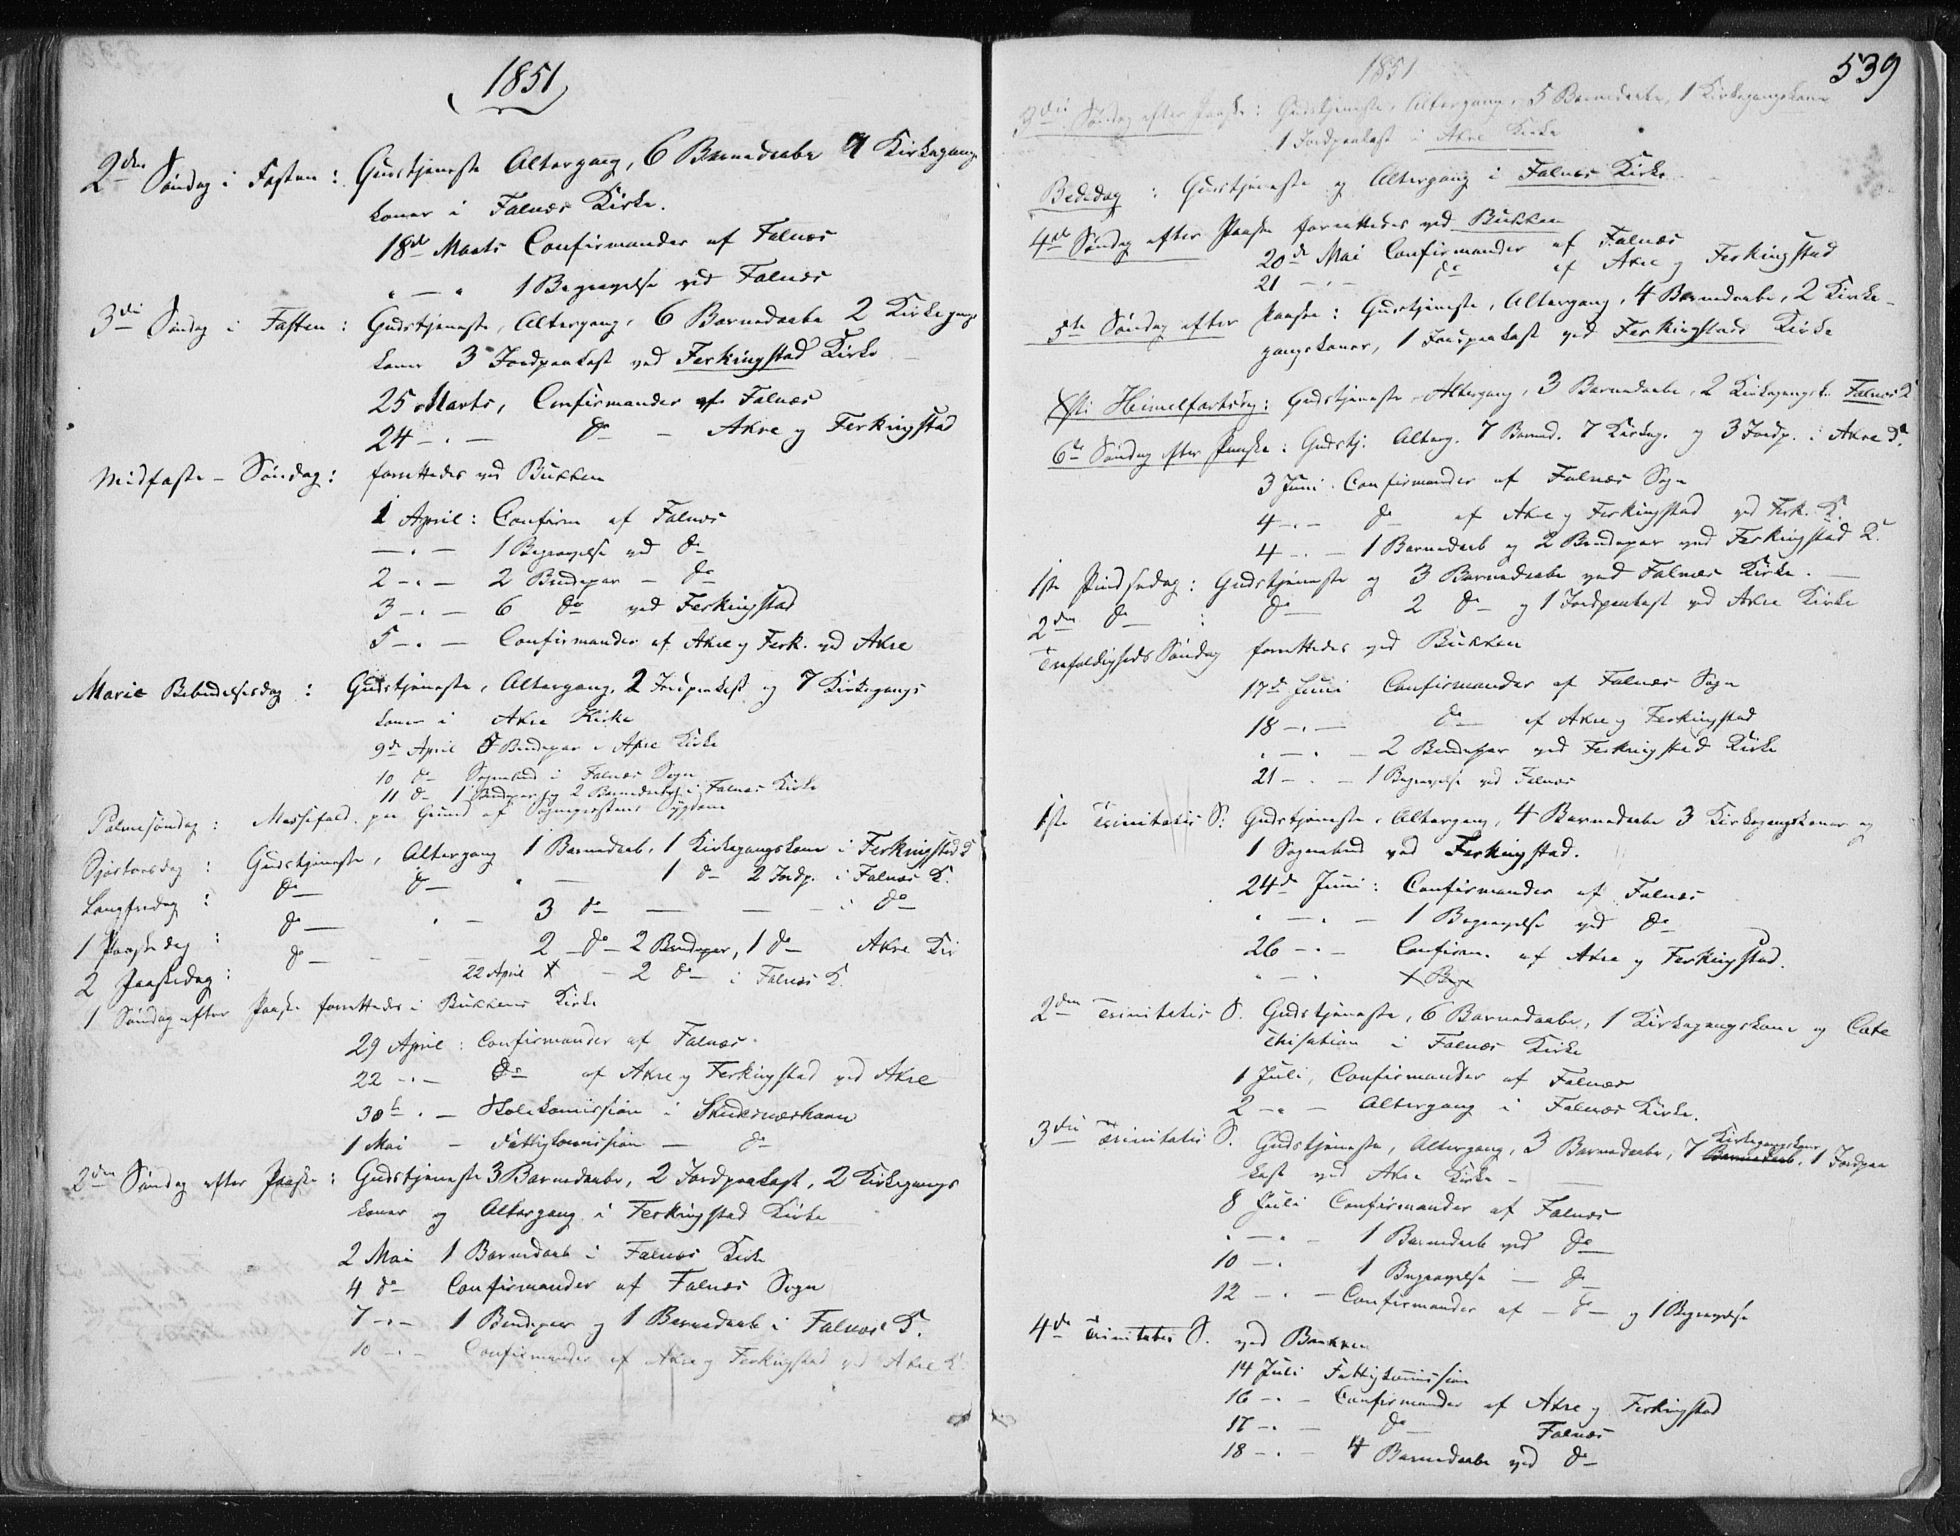 1851
2den Søndag i Fasten: Gudstjeneste Altergang, 6 Barnedaabe 9 Kirkegangs
koner i Falnæs Kirke.
18de Marts Confirmander af Falnæs
" — " 1 Begravelse ved Falnæs
3die Søndag i Fasten: Gudstjeneste, Altergang, 6 Barnedaabe 2 Kirkegangs
koner 3 Jordpaakast ved Ferkingstad Kirke
25 Marts, Confirmander af Falnæs
24 — " — do — Akre og Ferkingstad
Midfaste-Søndag: forrettedes ved Bukken
1 April: Confirm af Falnæs
— " — 1 Begravelse ved do
2 — " — 2 Brudepar — do
3 — " — 6 do ved Ferkingstad
5 — " — Confirmander af Akre og Ferk. ved Akre
Marie Bebudelsesdag: Gudstjeneste, Altergang, 2 Jordpaakast og 7 Kirkegangs
koner i Akre Kirke
9de April 8 Brudepar i Akre Kirke
10 do Sognebud i Falnæs Sogn
11 do 1 Brudepar og 2 Barnedaabe i Falnæs Kirke
Palmesøndag: Messefald paa Grund af Sognepræstens Sygdom
Skjærtorsdag: Gudstjeneste, Altergang 1 Barnedaab, 1 Kirkegangskone i Ferkingstad K
Langfredag: do do " — 1 do 2 Jordp. i Falnæs K.
1 Paaskedag: do — " — 3 do — — i do
2 Paaskedag: do — — — 2 do 2 Brudepar, 1 do Akre Kir
22 April — 2 do i Falnæs K.
1 Søndag efter Paaske forrettedes i Bukkens Kirke
29 April: Confirmander af Falnæs.
22 — " — do af Akre og Ferkingstad ved Akre
30te " — Skolekomission i Skudesnæshavn
1 Mai — Fattigkomission — do
2den Søndag efter Paaske: Gudstjeneste 3 Barnedaabe, 2 Jordpaakast, 2 Kirkegangs
koner og Altergang i Ferkingstad Kirke
2 Mai 1 Barnedaab i Falnæs Kirke
4 do Confirmander af Falnæs Sogn
7 — " — 1 Brudepar og 1 Barnedaab i Falnæs K.
10 — " — Confirmander af Akre og Ferkingstad ved Akre K.
1851
539
3die Søndag efter Paaske: Gudstjeneste, Altergang, 5 Barnedaabe, 1 Kirkegangskone
1 Jordpaakast i Akre Kirke
Bededag: Gudstjeneste og Altergang i Falnæs Kirke
4de Søndag efter Paaske forrettedes ved Bukken
20de Mai Confirmander af Falnæs
21 — " — do af Akre og Ferkingstad
5te Søndag efter Paaske: Gudstjeneste, Altergang, 4 Barnedaabe, 2 Kirke-
gangskoner, 1 Jordpaakast ved Ferkingstads Kirke
Xsti Himelfartsdg: Gudstjeneste Altergang, 3 Barnedaabe, 2 Kirkegangsk. Falnæs K
6te Søndag efter Paaske: Gudstj. Alterg. 7 Barned. 7 Kirkeg. og 3 Jordp. i Akre K.
3 Juni. Confirmander af Falnæs Sogn
4 — " — do af Akre og Ferkingstad ved Ferk. K.
4 — " — 1 Barnedaab og 2 Brudepar ved Ferkingstad K.
1ste Pindsedag: Gudstjeneste og 3 Barnedaabe ved Falnæs Kirke.
2den do: do 2 do og 1 Jordpaakast ved Akre Kirke
Trefoldigheds Søndag forrettedes ved Bukken
17de Juni Confirmander af Falnæs Sogn
18 — " — do af Akre og Ferkingstad
" — " — 2 Brudepar ved Ferkingstad Kirke
21 — " — 1 Begravelse ved Falnæs
1ste Trinitatis S. Gudstjeneste, Altergang, 4 Barnedaabe 3 Kirkegangskoner og
1 Sognebud ved Ferkingstad.
24de Juni: Confirmander af Falnæs
" — " — 1 Begravelse ved do
26 — " — Confirm. af Akre og Ferkingstad.
" — " X Begr
2den Trinitatis S. Gudstjeneste, 6 Barnedaabe, 1 Kirkegangskone og Cate
chisation i Falnæs Kirke
1 Juli, Confirmander af Falnæs
2 — " — Altergang i Falnæs Kirke.
3die Trinitatis S. Gudstjeneste, Altergang, 3 Barnedaabe, 7 Kirkegangskoner Barnedaab, 1 Jordpaa
kast ved Akre Kirke
8 Juli Confirmander af Falnæs
" — " — 1 Barnedaab ved do
10 — " 1 Begravelse — do
12 — " — Confirmander af — do — og 1 Begravelse
4de Trinitatis S. ved Bukken
14 Juli Fattigkomission
16 — " — Confirmander af Akre og Ferkingstad
17 — " — do Falnæs
18 — " — 4 Barnedaabe ved do